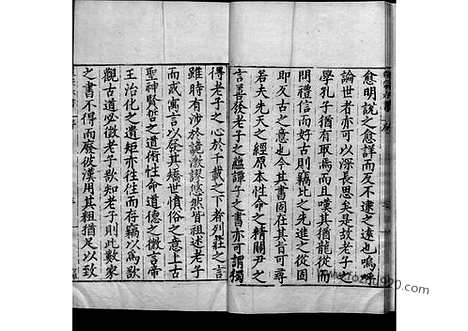 愈明說之愈詳而反不逮之遠也嗚呼
論世者亦可以深長思矣是故老子之
學孔子猶有取焉而且嘆其猶龍從而
問禮信而好古則竊比之先進之從固
即反古之意也今其書固在其旨可尋
若夫先天之經原本性命之精關尹之
言善發老子之蘊譚子之書亦可謂獨
得老子之心於千載之下者列莊之言
雖時有涉於詭激謬悠然皆祖述老子
而或寓言以發其矯世憤俗之意上古
聖神賢哲之道術性命道德之微言帝
王治化之遺矩亦往往而在故竊以為欲
觀古道必徵老子欲知老子則此數家
之書不得而廢彼漢用其粗猶足以致